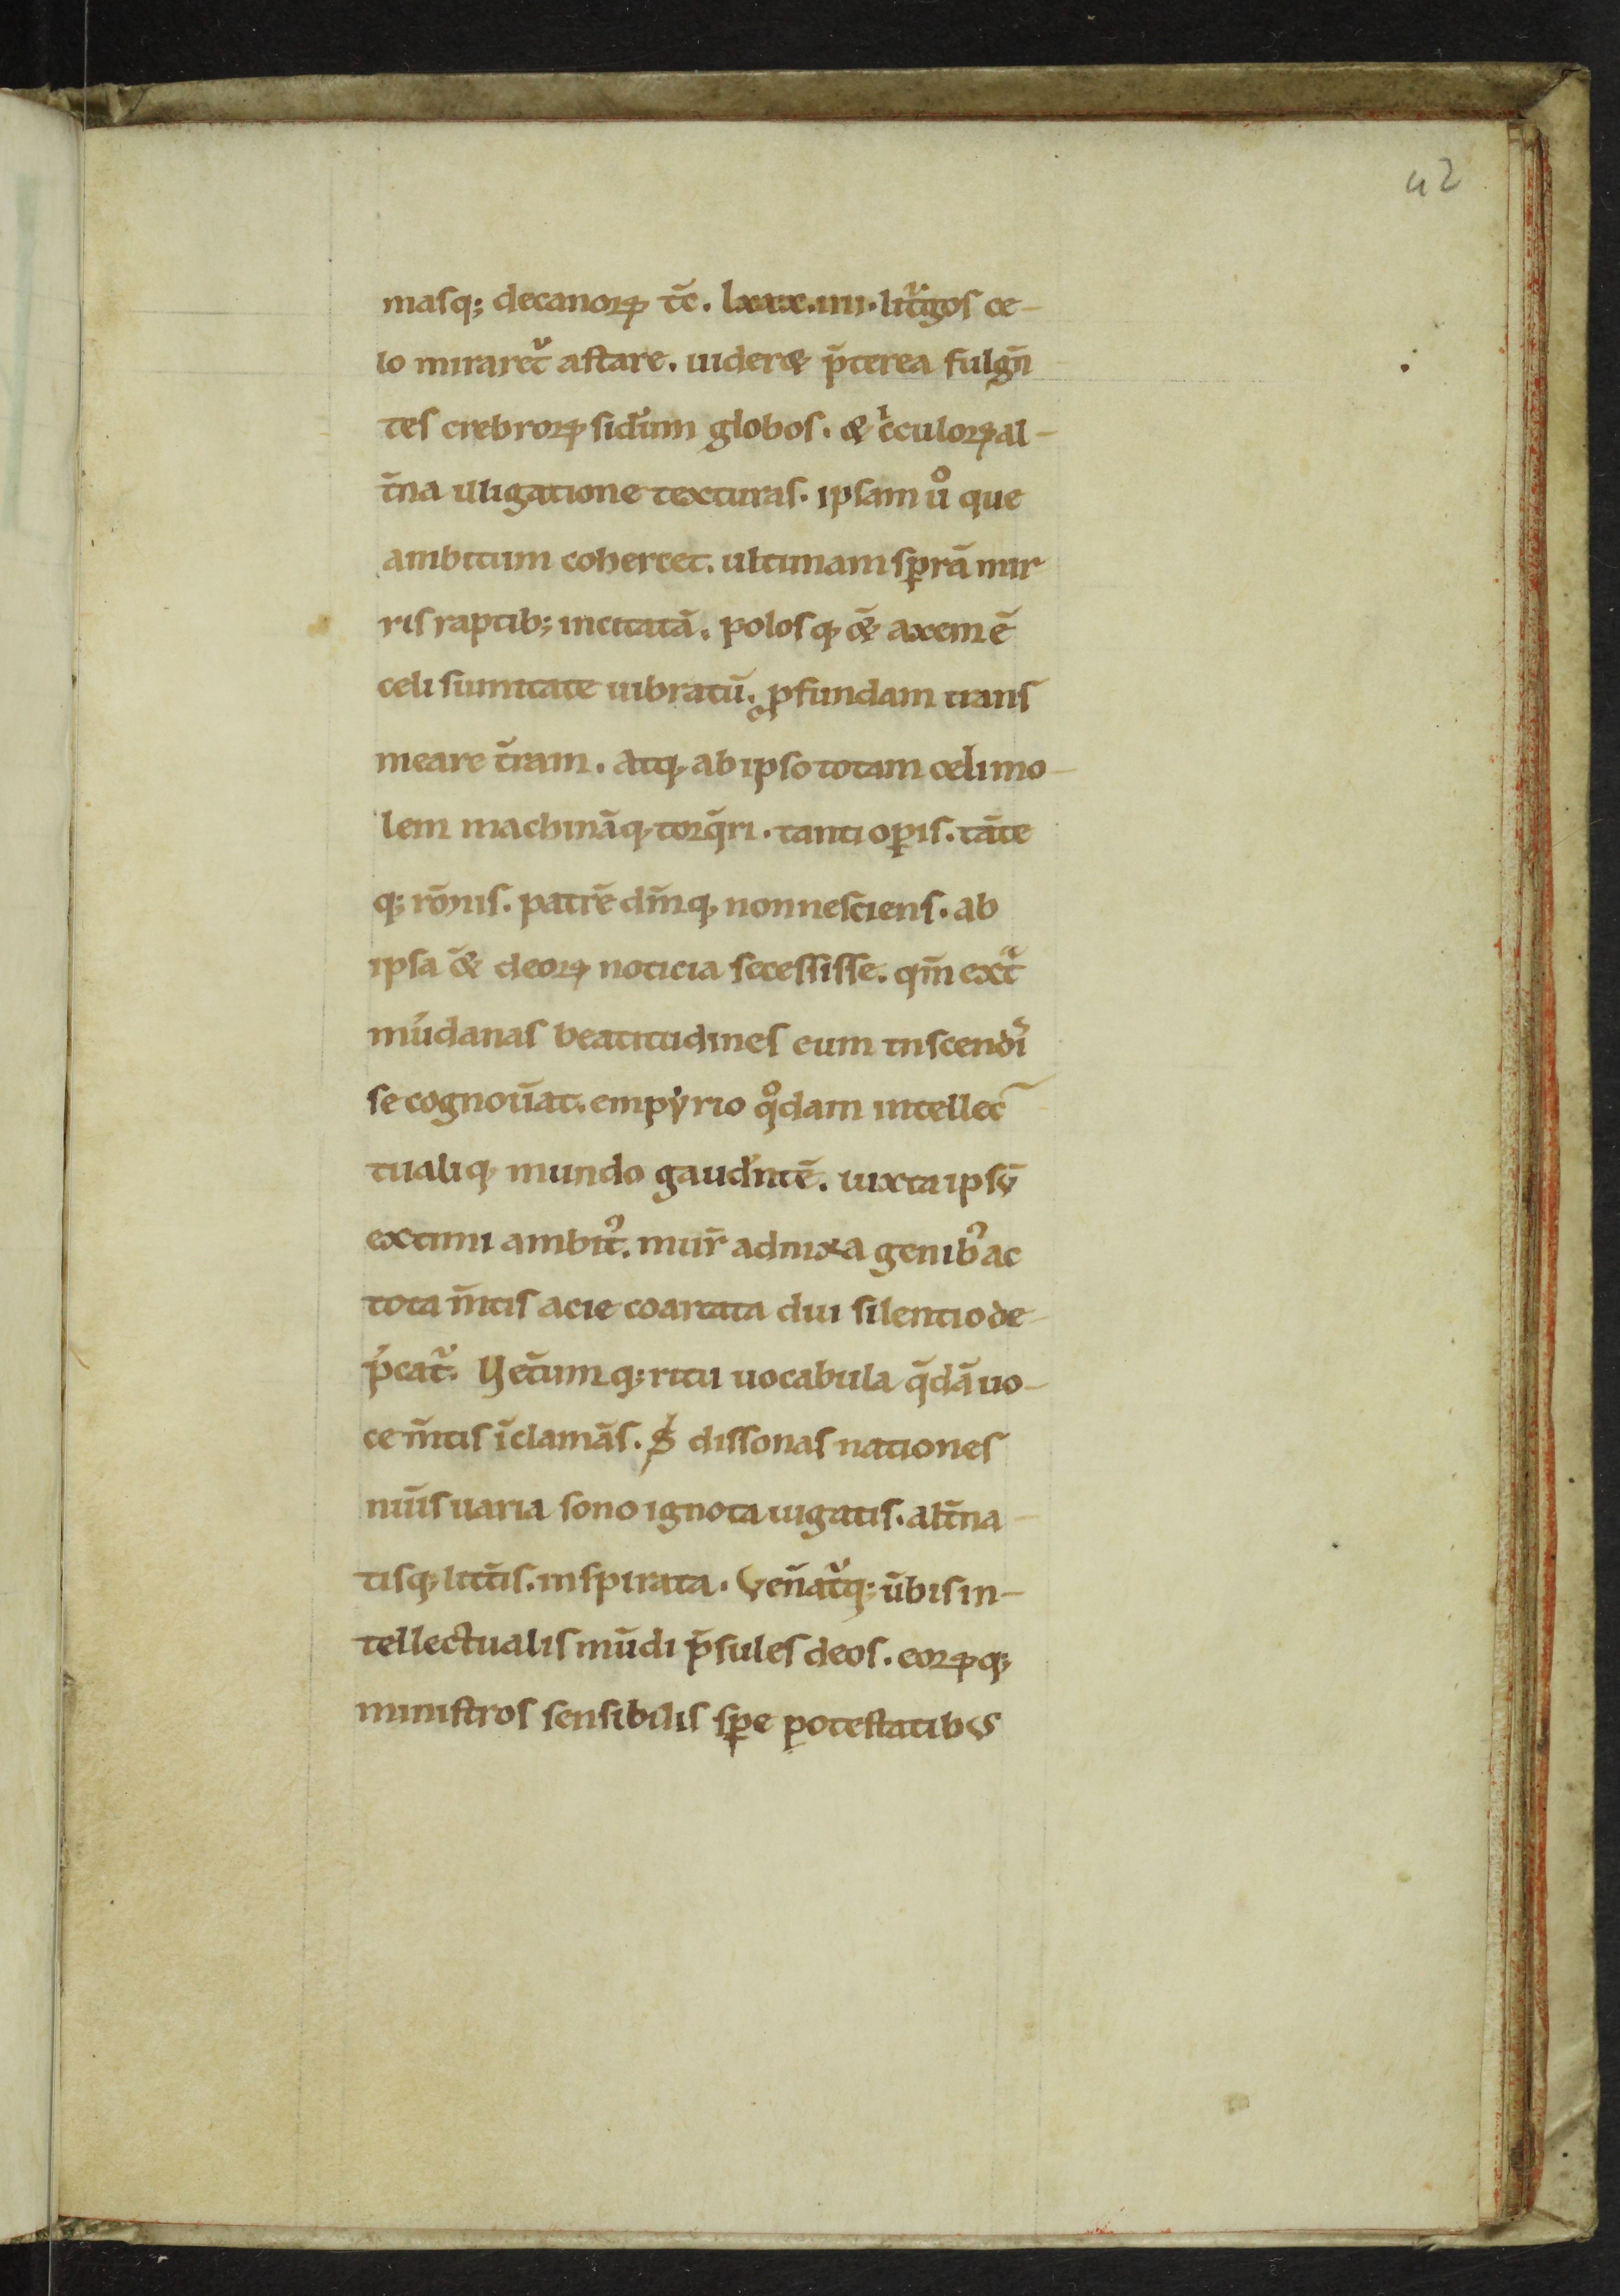 42
masq; decanoꝝ tc̄. lxxx.iiii. litͧgos ce-
lo miraretͧ astare. uider& p̄terea fulgn̄
tes crebroꝝ sidꝰum globos. & cͥculoꝝ al-
t̄na illigatione texturas. ipsam uͦ que
ambitum cohercet. ultimam sꝑrā mir
ris raptib; incitatā. polosq; & axem ē
celi sumitate uibratū. ꝓfundam trans
meare t̄ram. atq; ab ipso totam celi mo-
lem machināq; torq̄ri. tanti oꝑis. tāte
q; rōnis. patrē dm̄q; non nesciens. ab
ipsa & deoꝝ noticia secessisse. qm̄ extͣ
mūdanas beatitudines eum tn̄scendi
se cognou̅at. empyrio qͦdam intellec
tualiq; mundo gaudn̄tē. iuxta ipsū
extimi ambitꝰ. mur̄ adnixa genibꝰ ac
tota m̄tis acie coartata diu silentio de-
p̄catͧ. Uet̄umq; ritu uocabula q̄dā uo-
ce m̄tis īclamās. S; dissonas nationes
nūis uaria sono ignota iugatis. alt̄na
tisq; litt̄is. inspirata. Ven̄atͧq; u̅bis in-
tellectualis mūdi p̄sules deos. eoꝝq;
ministros sensibilis sꝑe potestatibus